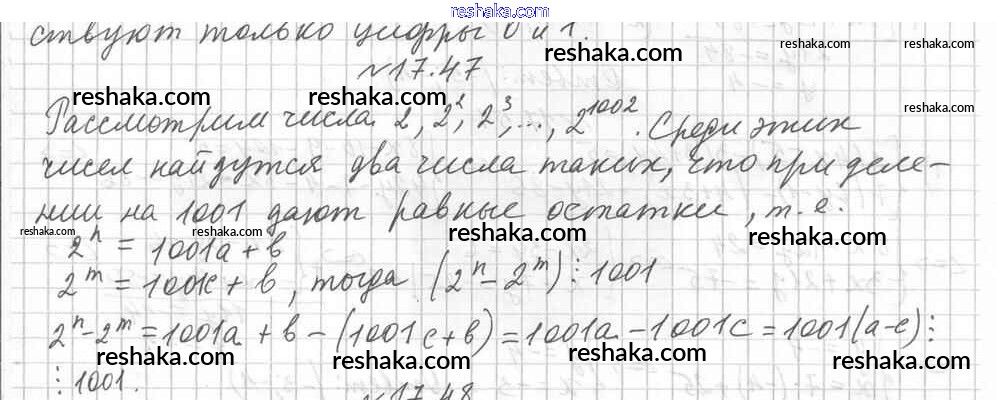 reshaka.com
ствуют только цифры 0 и 1.
reshaka.com
reshaka.com
reshaka.com
№17.47
reshaka.com
reshaka.com
reshaka.com
Рассмотрим числа 2, 2², 2³, ..., 2¹⁰⁰². Среди этих
чисел найдутся два числа таких, что при деле-
нии на 1001 дают равные остатки, т. е.
reshaka.com
reshaka.com
reshaka.com
2ⁿ = 1001a + b
2ᵐ = 1001c + b, тогда (2ⁿ - 2ᵐ) ⋮ 1001
2ⁿ - 2ᵐ = 1001a + b - (1001c + b) = 1001a - 1001c = 1001(a - c) ⋮
reshaka.com
reshaka.com
reshaka.com
reshaka.com
⋮ 1001.
№17.48